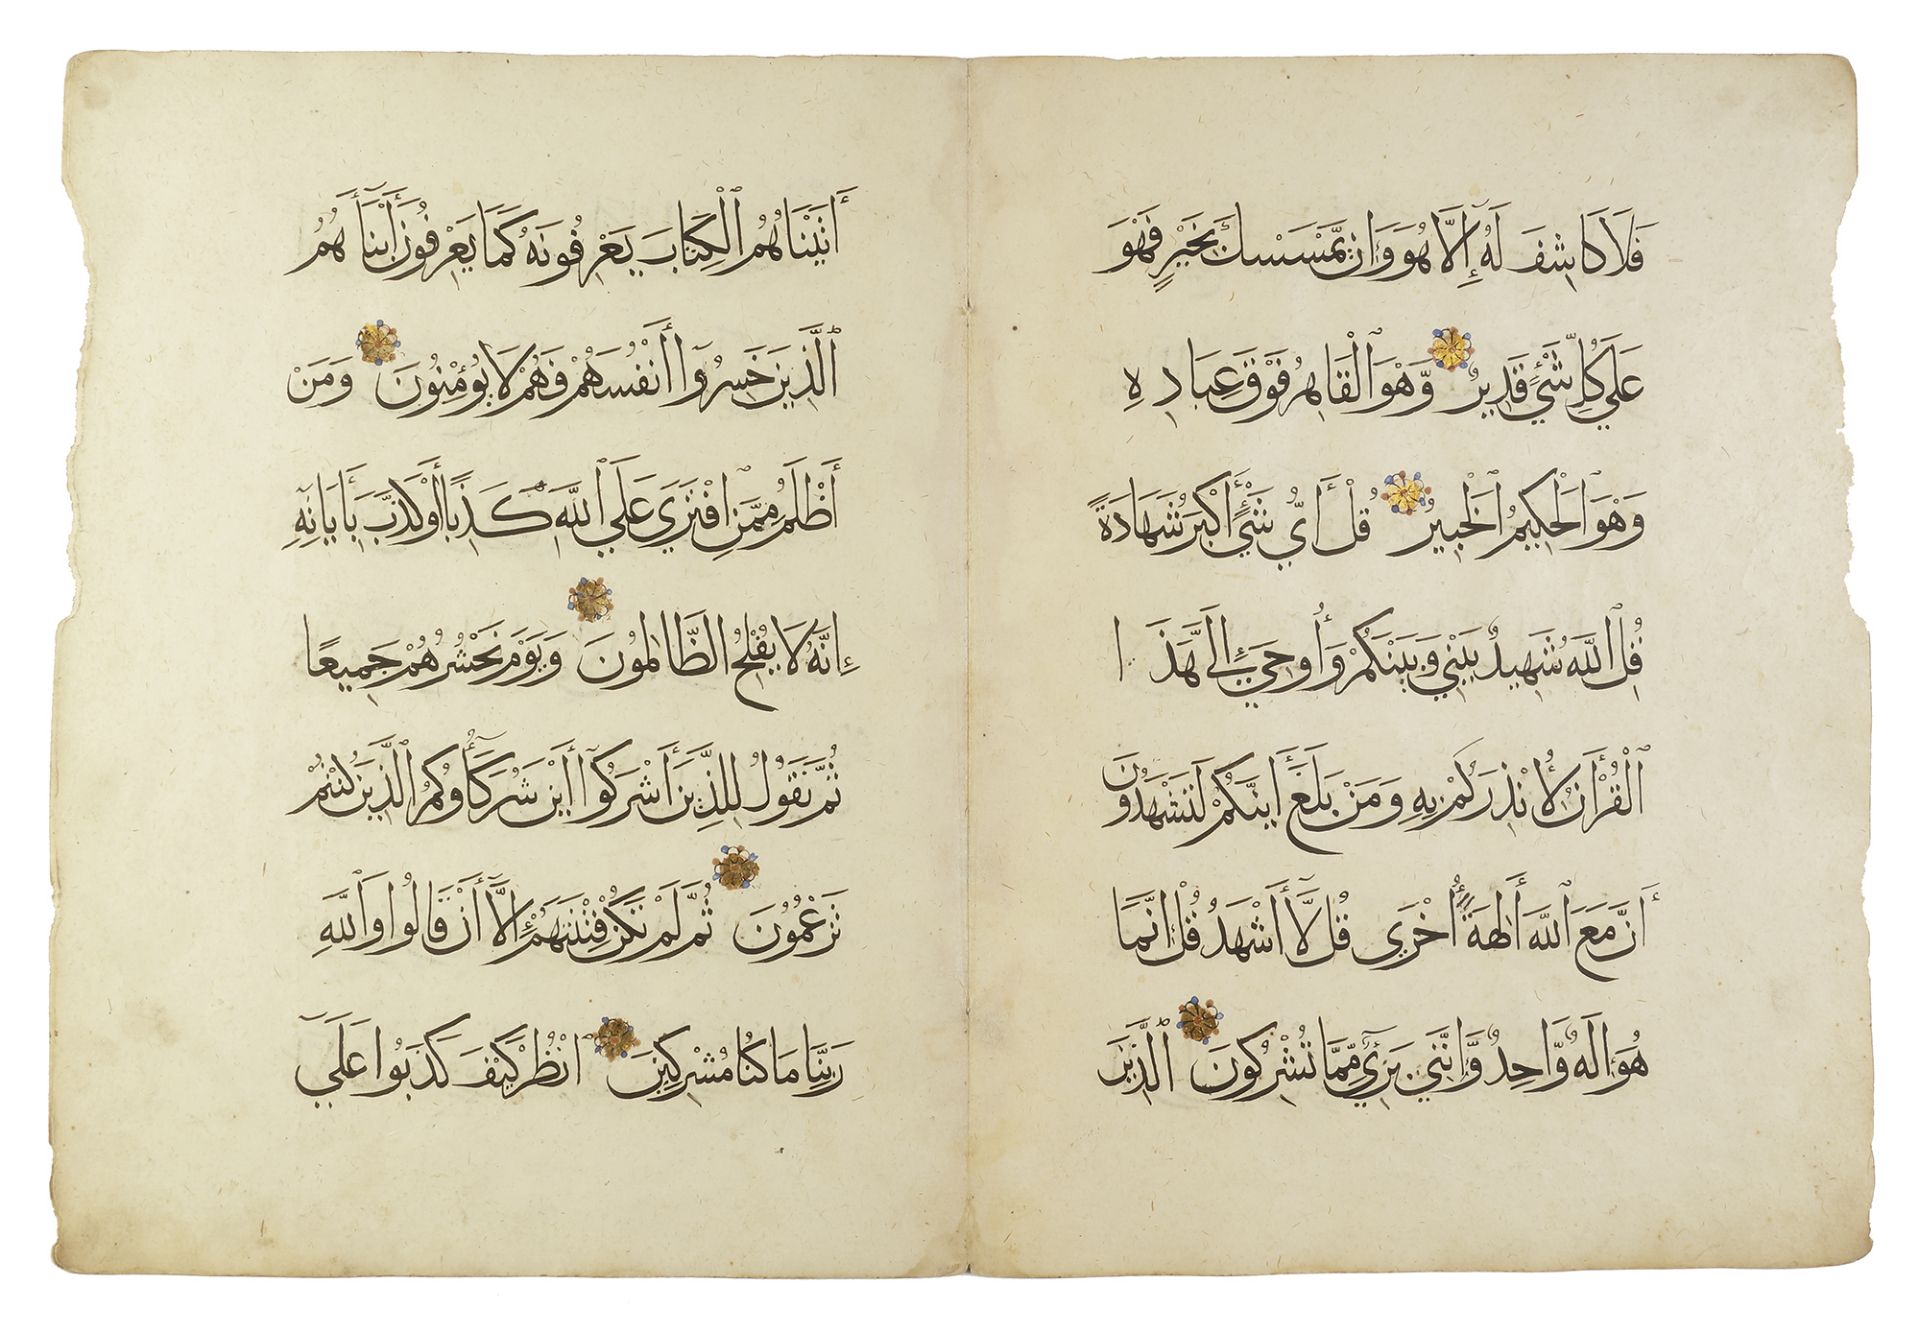 فَلَا كَاشِفَ لَهُ إِلَّا هُوَ وَإِن يَمْسَسْكَ بِخَيْرٍ فَهْوَ
عَلَي كُلِّ شَيْءٍ قَدِيرٌ وَهْوَ الْقَاهِرُ فَوْقَ عِبَادِهِ
وَهْوَ الْحَكِيمُ الْخَبِيرُ قُلْ أَيُّ شَيْءٍ أَكْبَرُ شَهَادَةً
قُلِ اللَّهُ شَهِيدٌ بَيْنِي وَبَيْنَكُمْ وَأُوحِيَ إِلَيَّ هَذَا
الْقُرْأَنُ لِأُنْذِرَكُمْ بِهِ وَمَنْ بَلَغَ أَيِنَّكُمْ لَتَشْهَدُونَ
أَنَّ مَعَ اللَّهِ أَالِهَةً أُخْرَي قُل لَّا أَشْهَدُ قُلْ إِنَّمَا
هُوَ إِلَهٌ وَّاحِدٌ وَّإِنَّنِي بَرِيءٌ مِّمَّا تُشْرِكُونَ الَّذِينَ
أَتَيْنَاهُمُ الْكِتَابَ يَعْرِفُونَهُ كَمَا يَعْرِفُونَ أَبْنَآءَهُمُ
الَّذِينَ خَسِرُوا أَنْفُسَهُمْ فَهُمْ لَا يُؤْمِنُونَ وَمَنْ
أَظْلَمُ مِمَّنِ افْتَرَي عَلَي اللَّهِ كَذِبًا أَوْ كَذَّبَ بِأَيَاتِهِ
إِنَّهُ لَا يُفْلِحُ الظَّالِمُونَ وَيَوْمَ نَحْشُرُهُمْ جَمِيعًا
ثُمَّ نَقُولُ لِلَّذِينَ أَشْرَكُوا أَيْنَ شُرَكَآؤُكُمُ الَّذِينَ كُنْتُمْ
تَزْعُمُونَ ثُمَّ لَمْ تَكُنْ فِتْنَتَهُمْ إِلَّا أَنْ قَالُوا وَاللَّهِ
رَبِّنَا مَا كُنَّا مُشْرِكِينَ انْظُرْ كَيْفَ كَذَبُوا عَلَي